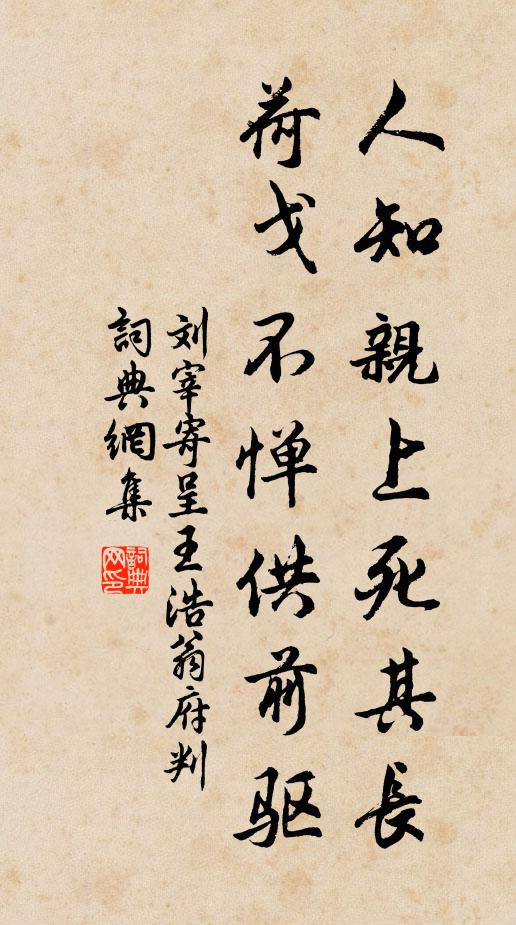 人知親上死其長
荷戈不惮供前驱
刘宰寄呈王浩翁府判
詞典網集
詞典网印